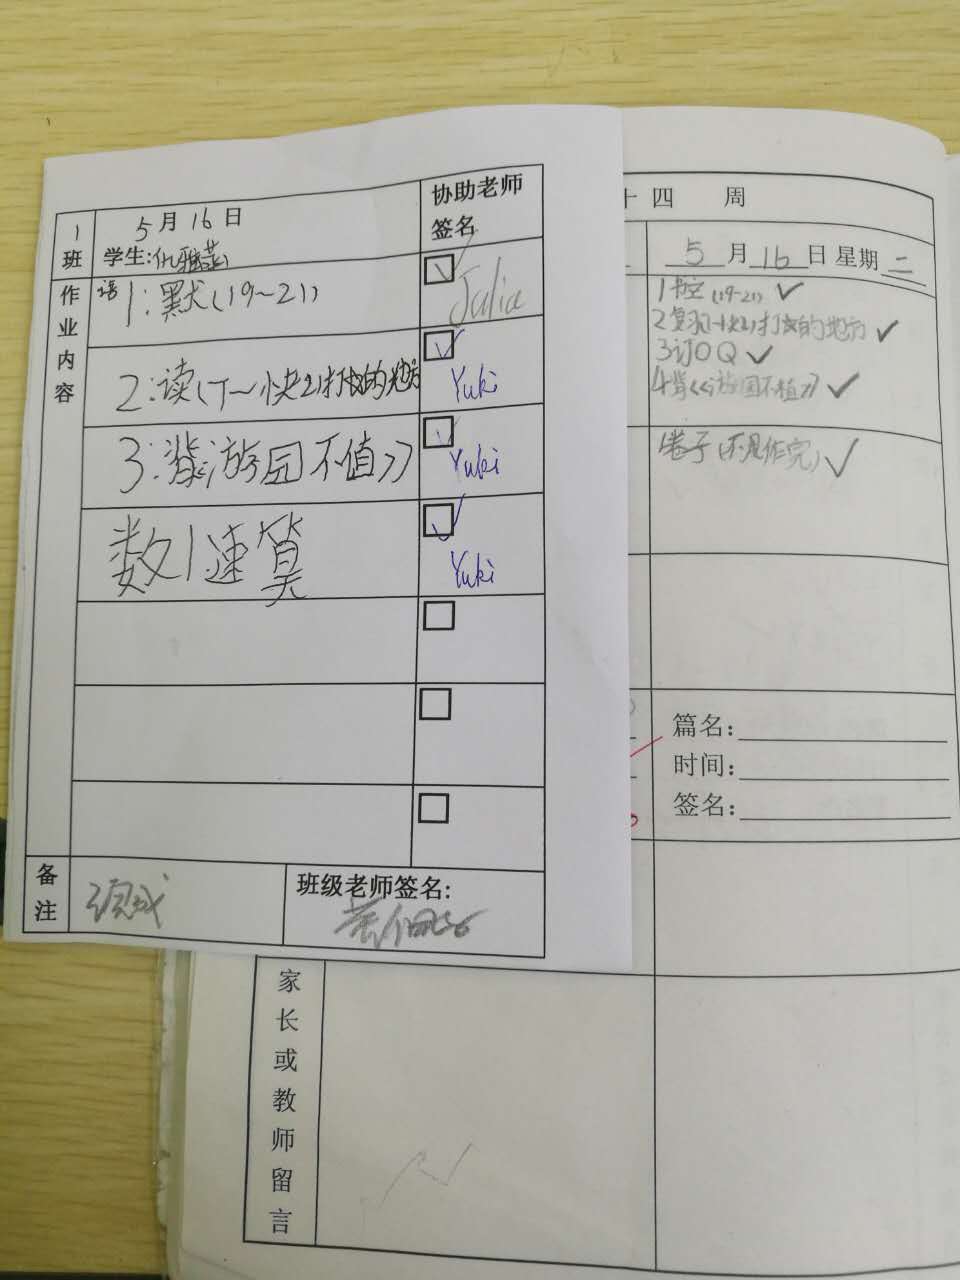 1班
5月16日
学生:仇雅
协助老师
签名
作业内容
语1:默(19~21)
Julia
2:读(丁~快2)打的地方
Yuki
3:背《游园不值》
Yuki
数1速算
Yuki
备注
完成
班级老师签名:
十四 周
5月16日 星期二
1书空(19-21)
2复习打的地方
3订OQ
4背《游园不植》
1卷子(不是作完)
篇名:
时间:
签名:
家长或教师留言